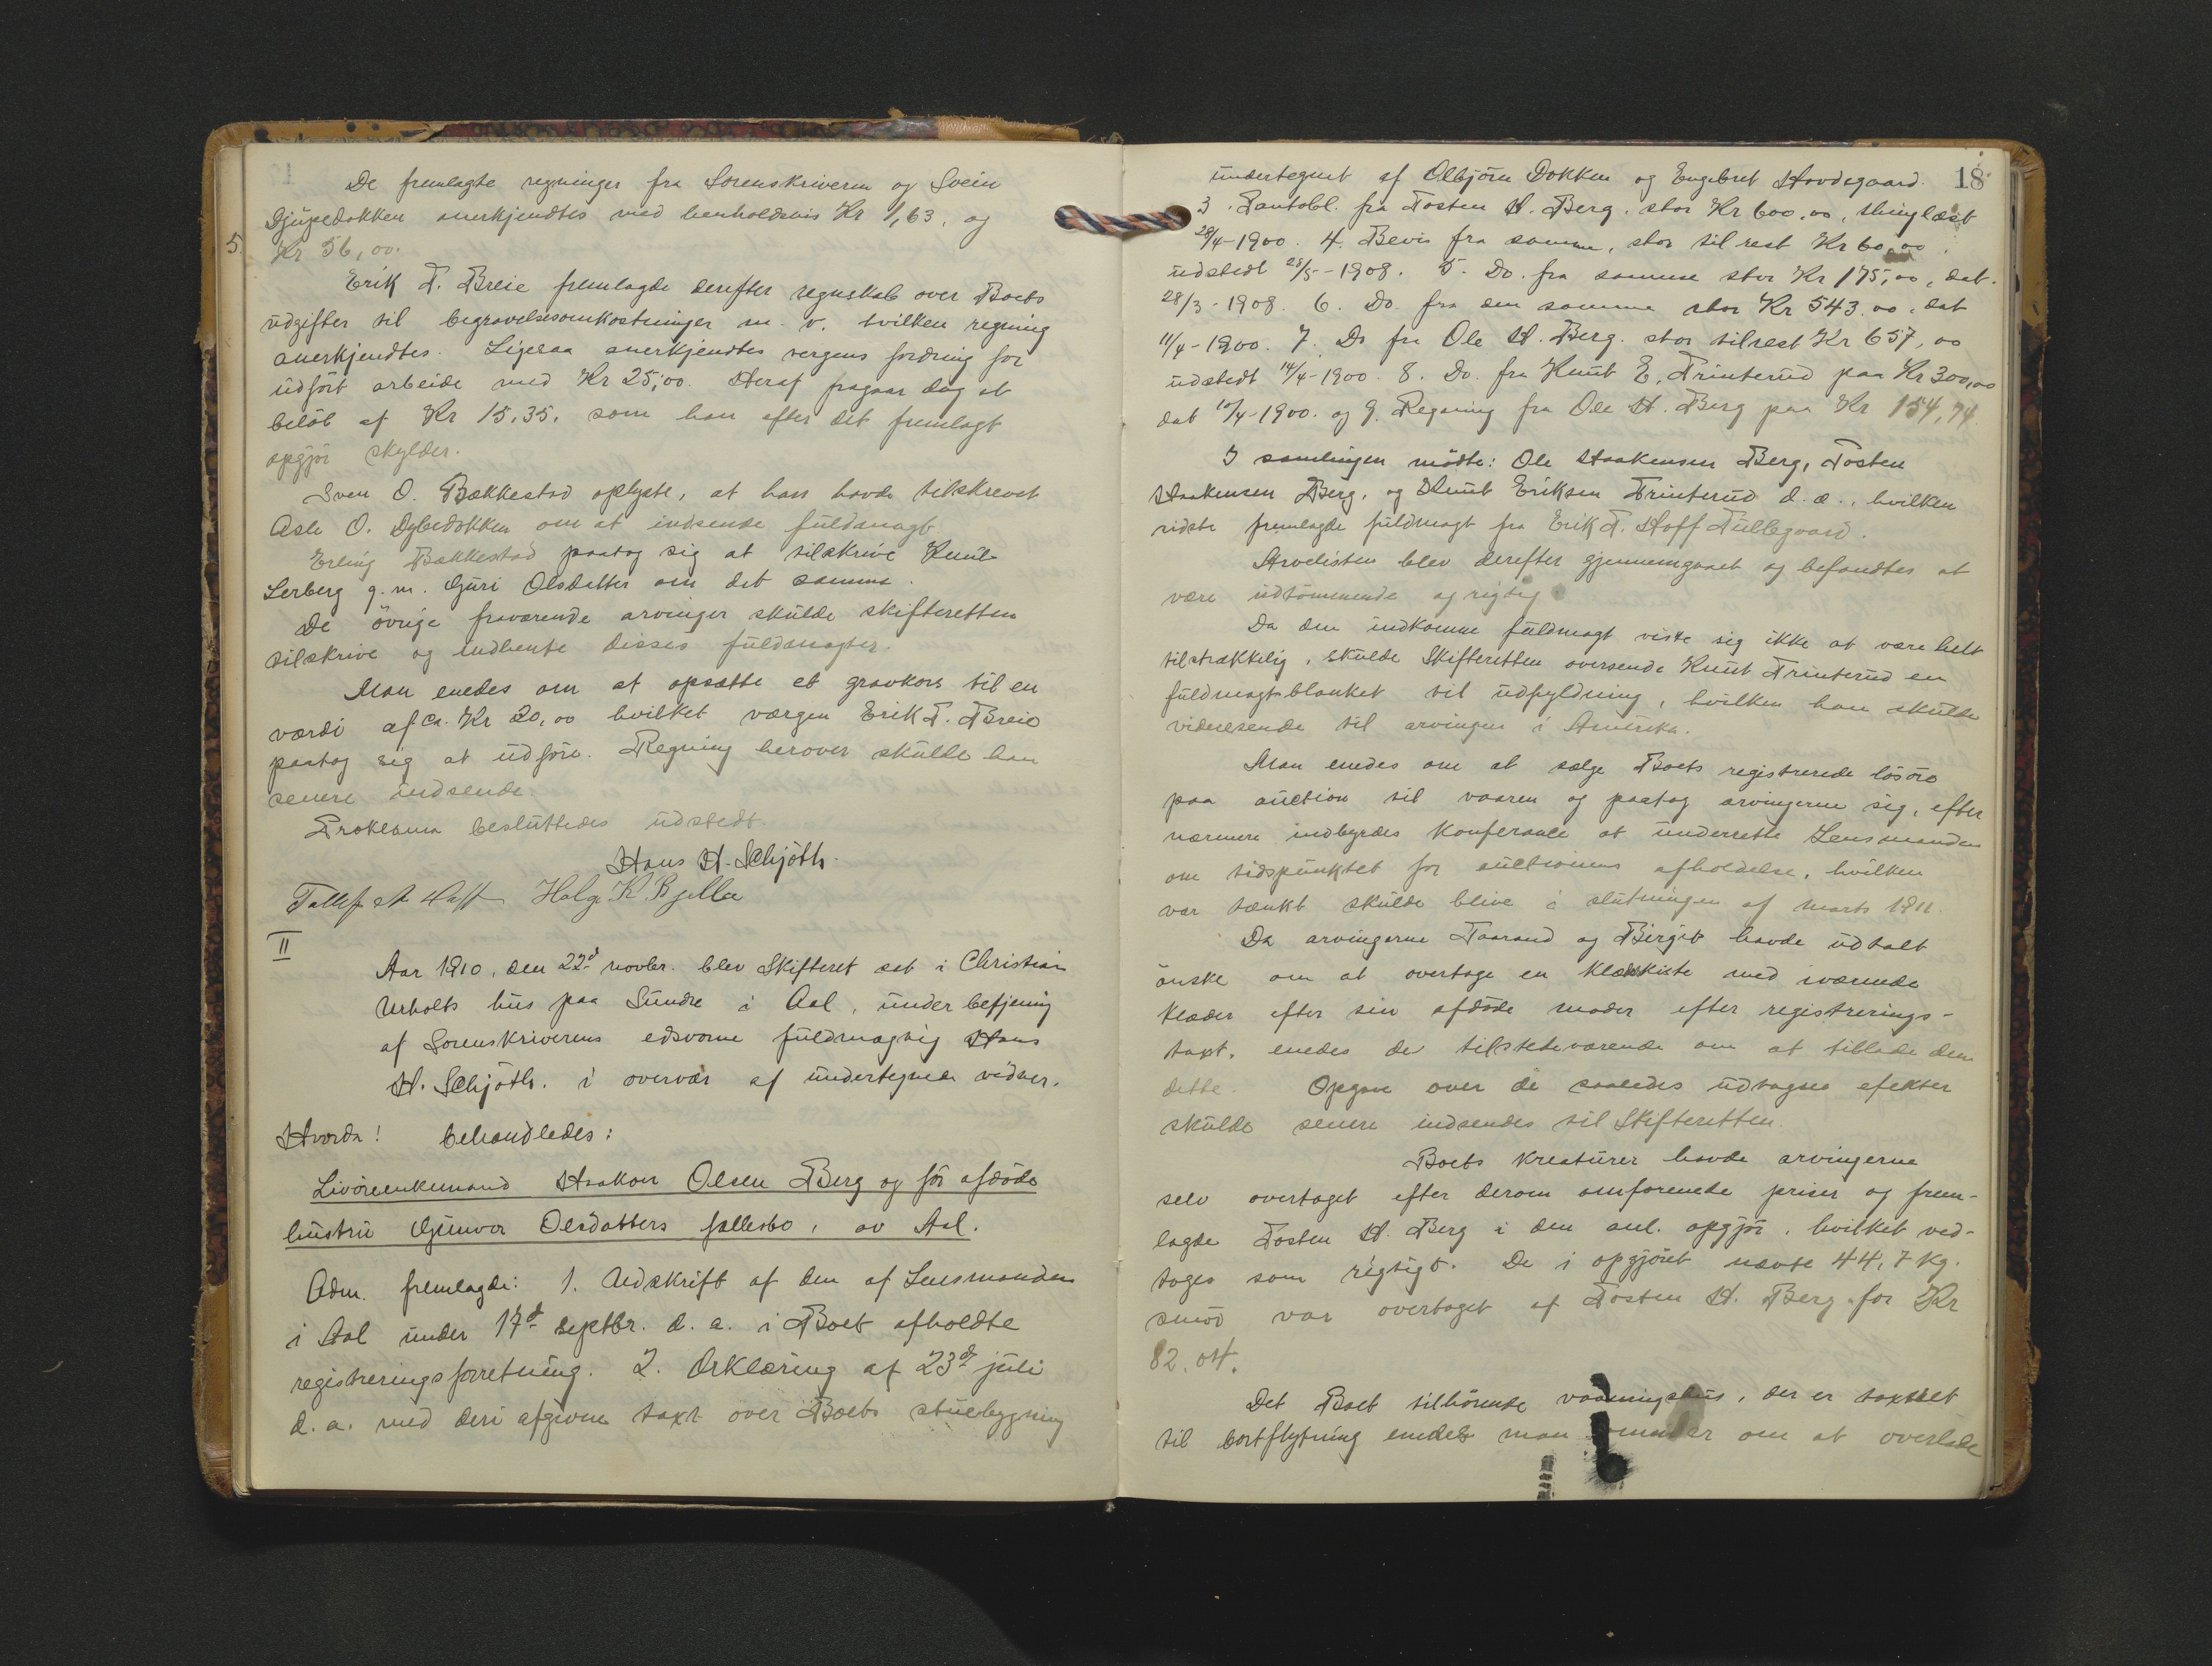 De fremlagte regninger fra Sorenskriveren og Svein
Djupedokken anerkjendtes med henholdsvis Kr 1,63, og
5. Kr 56,00.
Erik T. Breie fremlagde derefter regnskab over Boets
udgifter til begravelsesomkostninger m. v. hvilken regning
anerkjendtes. Ligesaa anerkjendtes vergens fordring for
udfört arbeide med Kr 25,00. Heraf fragaar dog et
belöb af Kr 15,35, som han efter det fremlagt
opgjör skylder.
Sven O. Bækkestad oplyste, at han havde tilskrevet
Asle O. Dybedokken om at indsende fuldmagt
Erling Bækkestad paatog sig at tilskrive Knut
Lerberg g. m. Guri Olsdatter om det samme.
De övrige fraværende arvinger skulde skifteretten
tilskrive og indhente disses fuldmagter.
Man enedes om at opsætte et gravkors til en
værdi af ca. Kr 20,00 hvilket værgen Erik T. Breie
paatog sig at udföre. Regning herover skulde han
senere indsende.
Proklama besluttedes udstedt.
Hans H. Schjöth.
Helge K. Bjella
II
Aar 1910, den 22d novbr. blev Skifteret sat i Christian
Urholts hus paa Sundre i Aal, under betjening
af Sorenskriverens edsvorne fuldmægtig Hans
H. Schjöth. i overvær af undertegnede vidner.
Hvorda! behandledes:
Livörenkemand Haakon Olsen Berg og för afdöde
hustru Gunvor Olsdatters fællesbo, av Aal.
Adm. fremlagde: 1. Udskrift af den af Lensmanden
i Aal under 17d septbr. d. a. i Boet afholdte
registreringsforretning. 2. Erklæring af 23d juli
d. a. med deri afgiven taxt over Boets stuebygning
18
undertegnet af Olbjörn Dokken og Engebret Hovdsgaard.
3. Pantobl. fra Tosten H. Berg. stor Kr 600,00, thinglæst
28/4-1900. 4. Bevis fra samme, stor til rest Kr 60,00
udstedt 28/5-1908. 5. Do. fra samme stor Kr 175,00, dat.
28/3-1908. 6. Do. fra den samme stor Kr 543.00, dat
11/4-1900. 7. Do fra Ole H. Berg. stor tilrest Kr 657,00
udstedt 14/4-1900. 8. Do. fra Knut E. Trinterud paa Kr 300,00
dat 10/4-1900. og 9. Regning fra Ole H. Berg paa Kr 154,74.
I samlingen mödte: Ole Haakensen Berg, Tosten
Haakensen Berg, og Knut Eriksen Trinterud d. æ., hvilken
sidste fremlagde fuldmagt fra Erik T. Hoff Tullegaard.
Arvelisten blev derefter gjennemgaaet og befandtes at
være udtömmende og rigtig
Da den indkomne fuldmagt viste sig ikke at være helt
tilstrækkelig, skulde Skifteretten oversende Knut Trinterud en
fuldmagtsblanket til udfyldning, hvilken han skulde
videresende til arvingen i Amerika.
Man enedes om at sælge Boets registrerede lösöre
paa auction til vaaren og paatog arvingerne sig, efter
nærmere indbyrdes konferance at underrette Lensmanden
om tidspunktet for auctionens afholdelse, hvilken
var tænkt skulde blive i slutningen af marts 1911.
Da arvingerne Taarand og Birgit havde udtalt
önske om at overtage en klædskiste med iværende
klæder efter sin afdöde moder efter registrerings-
taxt, enedes de tilstedeværende om at tillade dem
dette. Opgave over de saaledes udtagne efekter
skulde senere indsendes til Skifteretten.
Boets kreaturer havde arvingerne
selv overtaget efter derom omforenede priser og frem-
lagde Tosten H. Berg i den anl. opgjör, hvilket ved-
toges som rigtigt. De i opgjöret nævte 44,7 kg.
smör var overtaget af Tosten H. Berg for Kr
82.04.
Det Boet tilhörende vaaningshus, der er taxtert
til bortflytning enedes man om at overlade